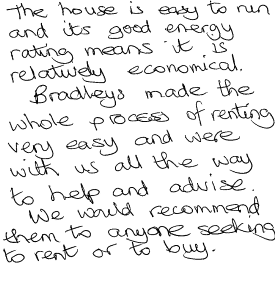 The house is easy to run
and its good energy
rating means it is
relatively economical.
Bradleys made the
whole process of renting
very easy and were
with us all the way
to help and advise.
We would recommend
them to anyone seeking
to rent or to buy.